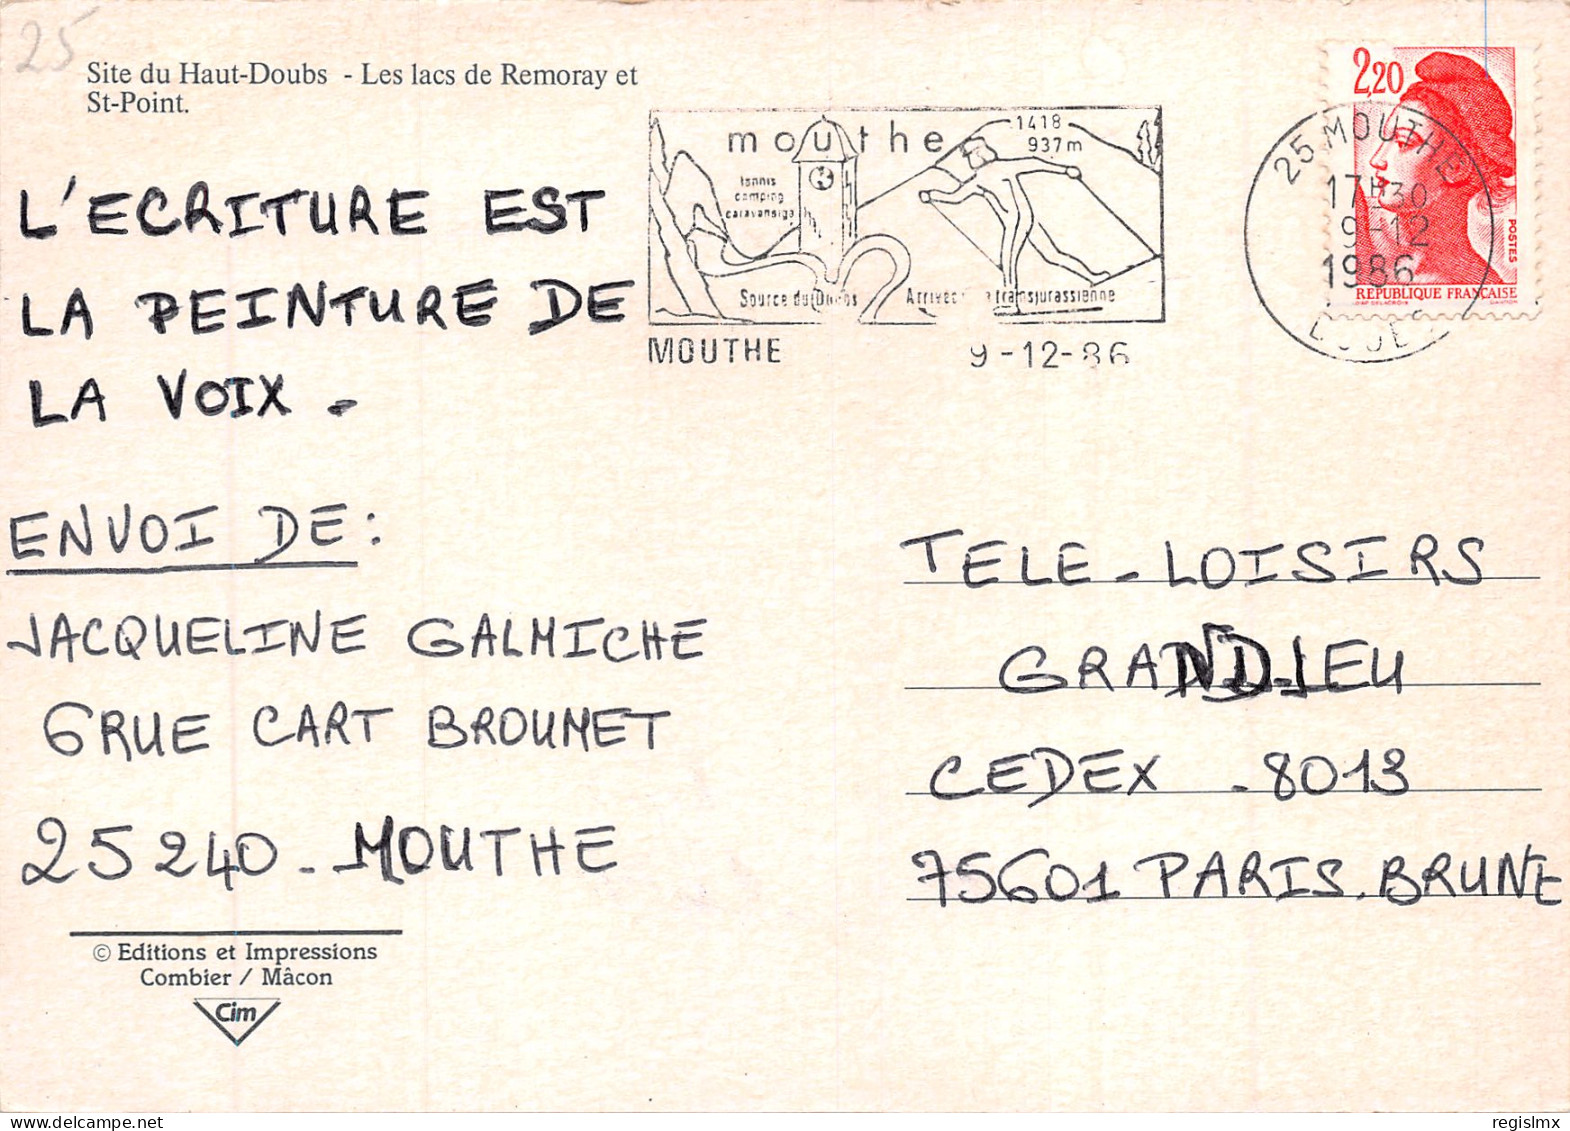 25
Site du Haut-Doubs - Les lacs de Remoray et
St-Point.
L'ECRITURE EST
LA PEINTURE DE
LA VOIX -
ENVOI DE :
JACQUELINE GALMICHE
6 RUE CART BROUMET
25240 - MOUTHE
© Editions et Impressions
Combier / Mâcon
Cim
mouthe
1418
937 m
tennis
camping
Source du Doubs
Arrivée transjurassienne
MOUTHE
9-12-86
25 MOUTHE
17H30
9-12
1986
DOUBS
2,20
POSTES
REPUBLIQUE FRANÇAISE
TELE - LOISIRS
GRANDJEU
CEDEX - 8013
75601 PARIS. BRUNE
regislmx